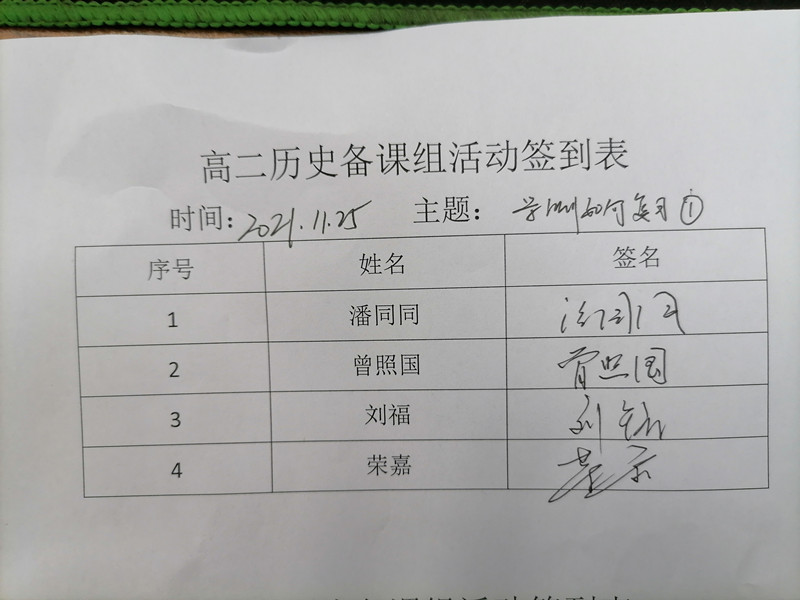 高二历史备课组活动签到表
时间：2021.11.25 主题：学测如何复习①
序号 姓名 签名
1 潘同同
2 曾照国 曾照国
3 刘福 刘
4 荣嘉